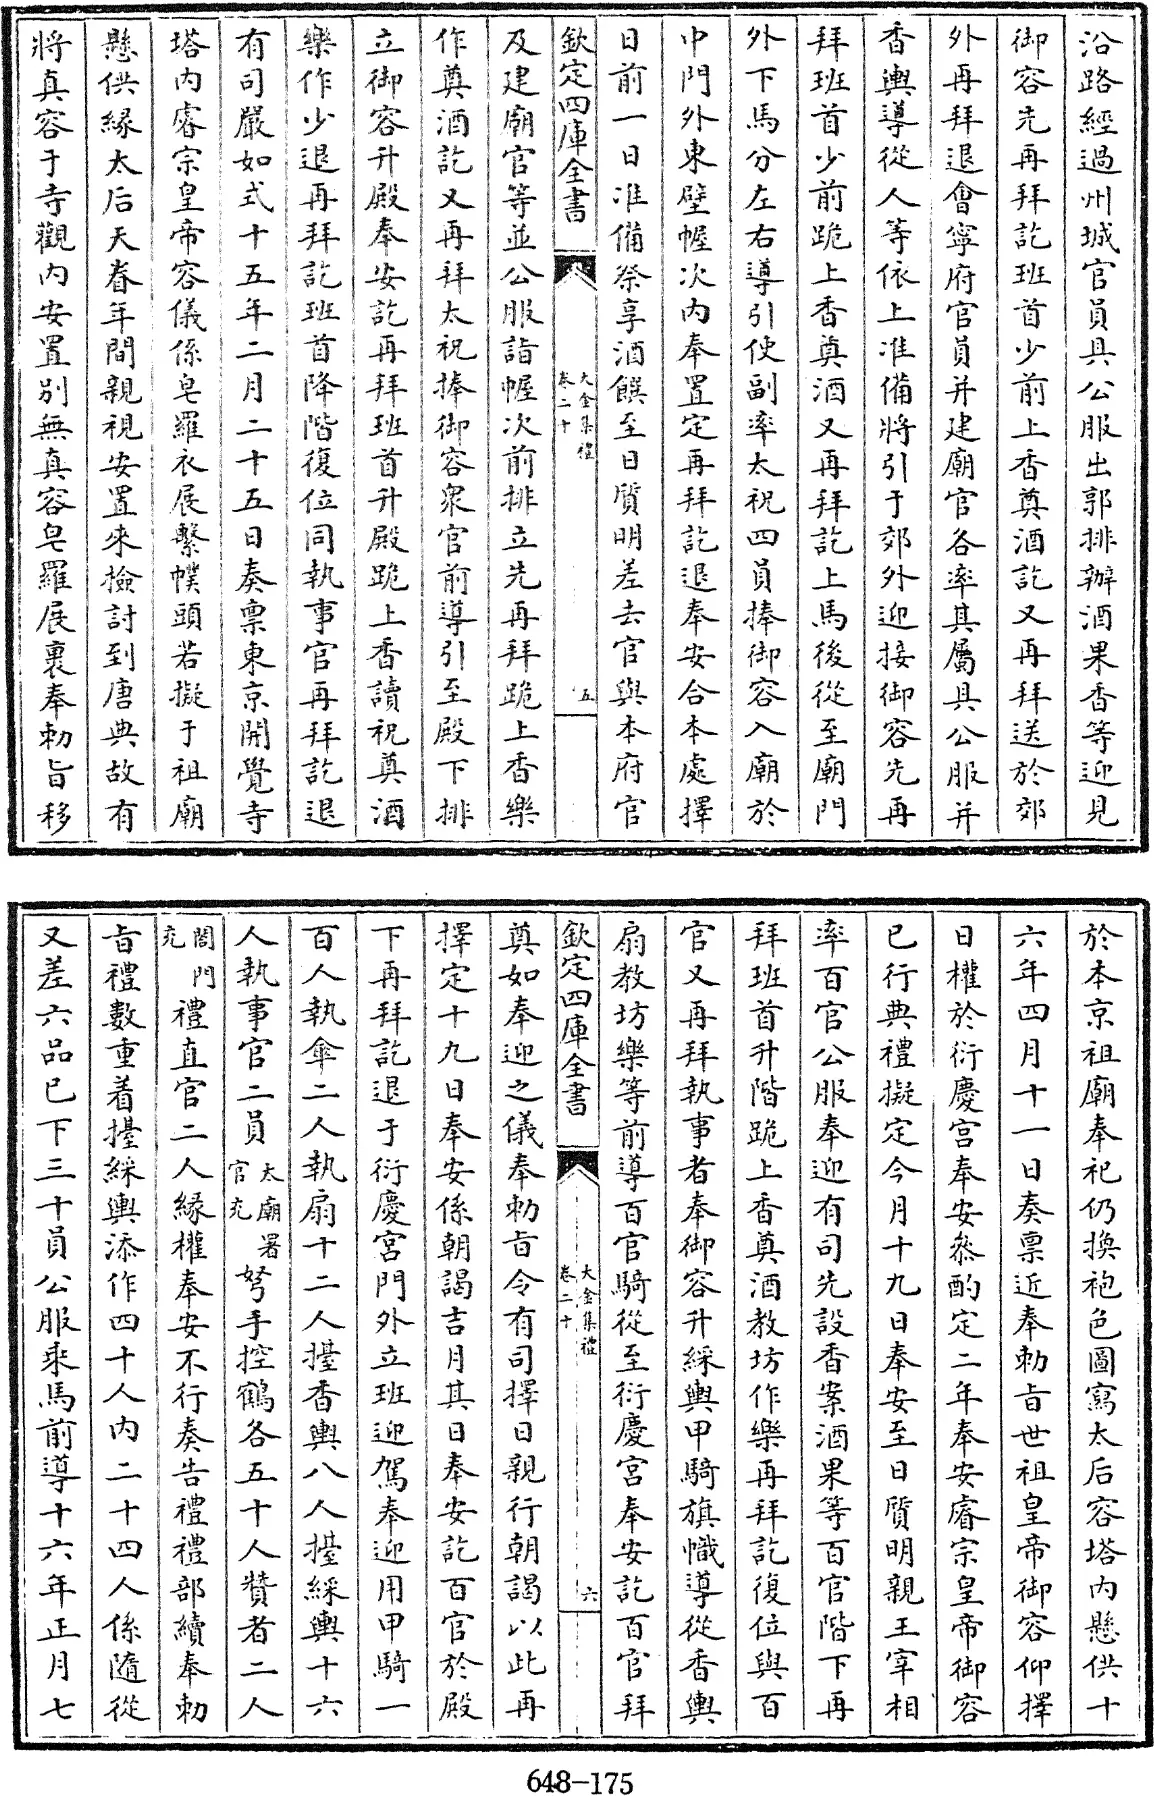 沿路經過州城官員具公服出郭排辦酒果香等迎見
御容先再拜訖班首少前上香奠酒訖又再拜送於郊
外再拜退會寧府官員并建廟官各率其屬具公服并
香輿導從人等依上准備將引于郊外迎接御容先再
拜班首少前跪上香奠酒又再拜訖上馬後從至廟門
外下馬分左右導引使副率太祝四員捧御容入廟於
中門外東壁幄次内奉置定再拜訖退奉安合本處擇
日前一日准備祭享酒饌至日質明差去官與本府官
欽定四庫全書
大金集禮
卷二十
五
及建廟官等並公服詣幄次前排立先再拜跪上香樂
作奠酒訖又再拜太祝捧御容衆官前導引至殿下排
立御容升殿奉安訖再拜班首升殿跪上香讀祝奠酒
樂作少退再拜訖班首降階復位同執事官再拜訖退
有司嚴如式十五年二月二十五日奏稟東京開覺寺
塔内睿宗皇帝容儀係皂羅衣展繫幞頭若擬于祖廟
懸供緣太后天眷年間親視安置來檢討到唐典故有
將真容于寺觀内安置别無真容皂羅展裹奉勅旨移
於本京祖廟奉祀仍換袍色圖寫太后容塔内懸供十
六年四月十一日奏稟近奉勅旨世祖皇帝御容仰擇
日權於衍慶宮奉安叅酌定二年奉安睿宗皇帝御容
已行典禮擬定今月十九日奉安至日質明親王宰相
率百官公服奉迎有司先設香案酒果等百官階下再
拜班首升階跪上香奠酒教坊作樂再拜訖復位與百
官又再拜執事者奉御容升綵輿甲騎旗幟導從香輿
扇教坊樂等前導百官騎從至衍慶宮奉安訖百官拜
欽定四庫全書
大金集禮
卷二十
六
奠如奉迎之儀奉勅旨令有司擇日親行朝謁以此再
擇定十九日奉安係朝謁吉月其日奉安訖百官於殿
下再拜訖退于衍慶宮門外立班迎駕奉迎用甲騎一
百人執傘二人執扇十二人擡香輿八人擡綵輿十六
人執事官二員太廟署官充弩手控鶴各五十人贊者二人
閤門充禮直官二人緣權奉安不行奏告禮禮部續奉勅
旨禮數重着擡綵輿添作四十人内二十四人係隨從
又差六品已下三十員公服乘馬前導十六年正月七
648-175